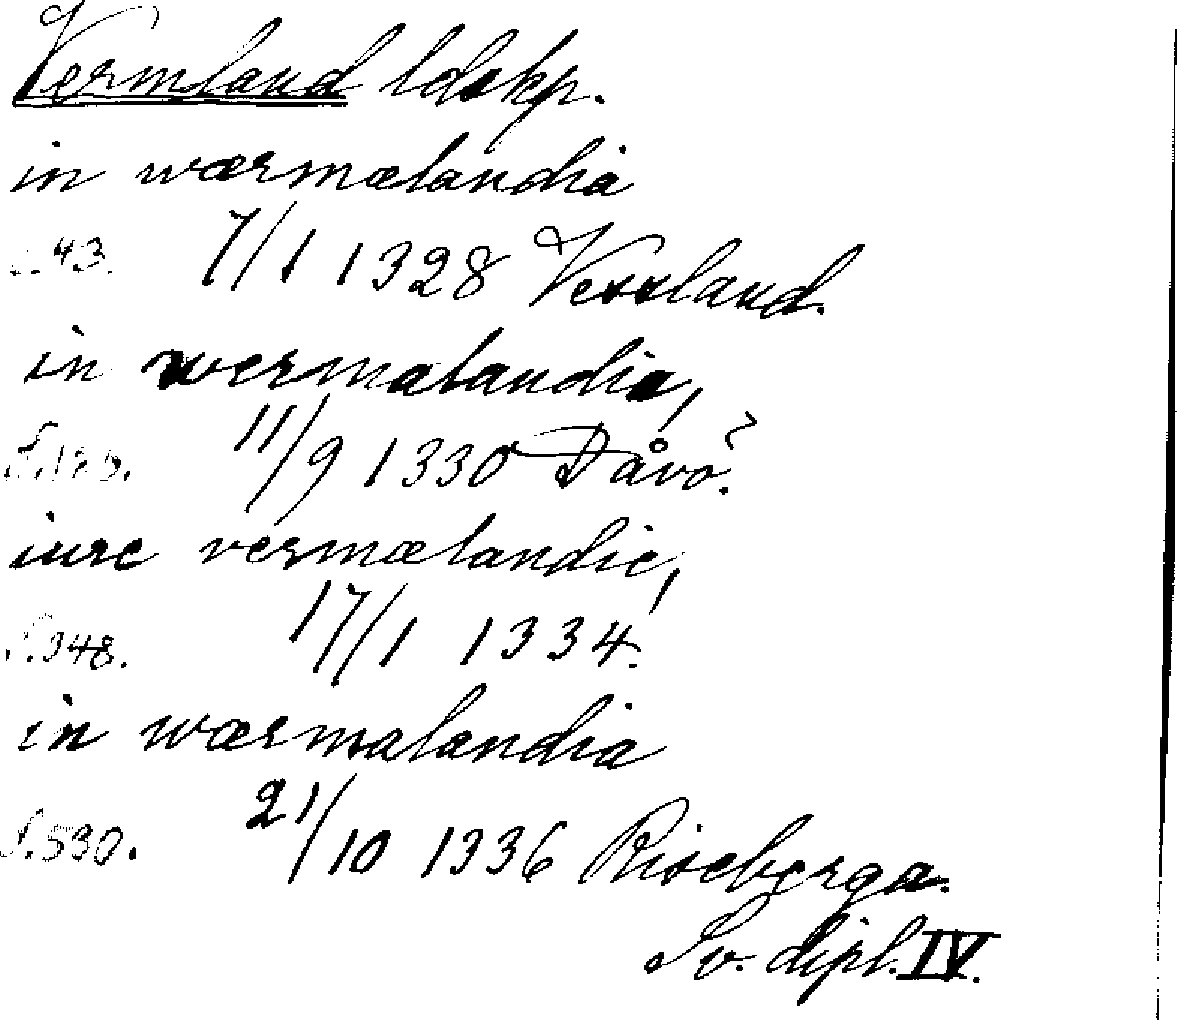 Vermland ldskp.
in wærmælandia
s.43. 7/1 1328 Vessland.
in wermalandia,
S.185. 11/9 1330 Dåvö?
iure vermælandie,
S.348. 17/1 1334.
in wærmalandia
S.530. 21/10 1336 Riseberga.
Sv. dipl. IV.